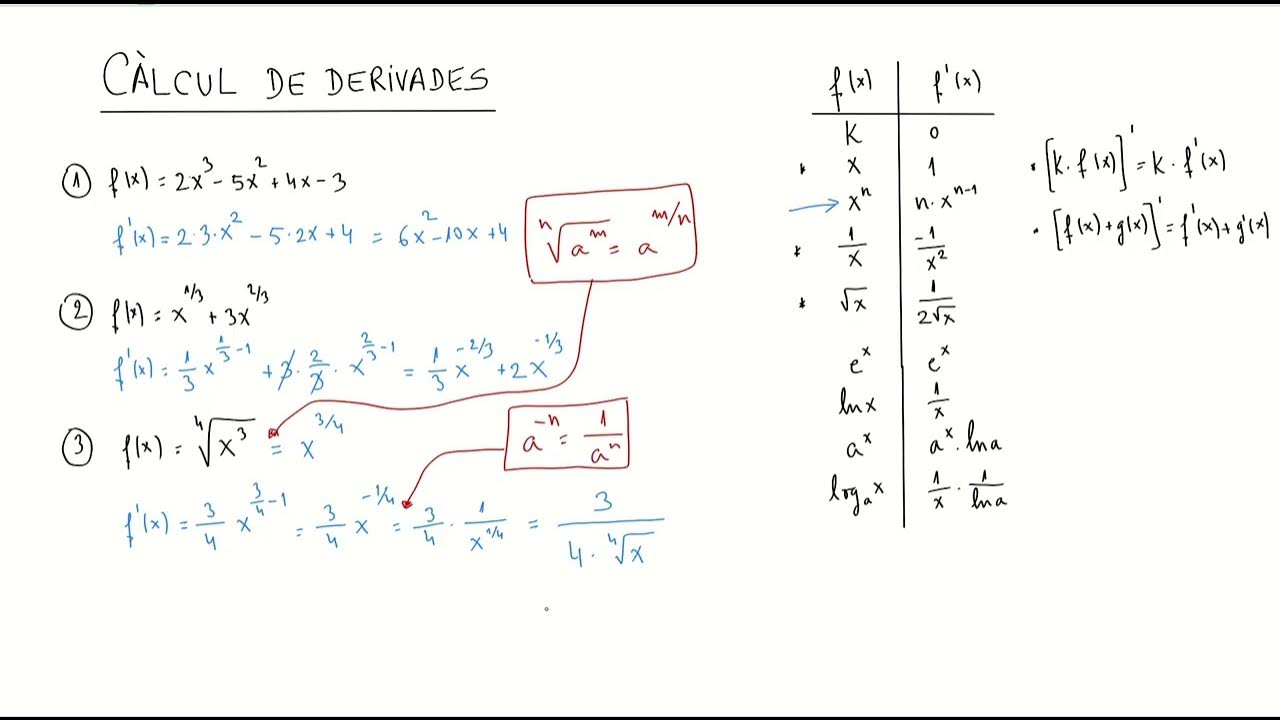 CÀLCUL DE DERIVADES
① f(x) = 2x³ - 5x² + 4x - 3
f'(x) = 2·3·x² - 5·2x + 4 = 6x² - 10x + 4
ⁿ√(a^m) = a^(m/n)
② f(x) = x^(1/3) + 3x^(2/3)
f'(x) = 1/3 x^(1/3 - 1) + 3·2/3·x^(2/3 - 1) = 1/3 x^(-2/3) + 2x^(-1/3)
③ f(x) = ⁴√(x³) = x^(3/4)
a^(-n) = 1/a^n
f'(x) = 3/4 x^(3/4 - 1) = 3/4 x^(-1/4) = 3/4 · 1/x^(1/4) = 3/(4·⁴√x)
f(x) f'(x)
K 0
* x 1
→ x^n n·x^(n-1)
* 1/x -1/x²
* √x 1/(2√x)
e^x e^x
ln x 1/x
a^x a^x·ln a
log_a x 1/x · 1/ln a
· [K·f(x)]' = K·f'(x)
· [f(x)+g(x)]' = f'(x)+g'(x)